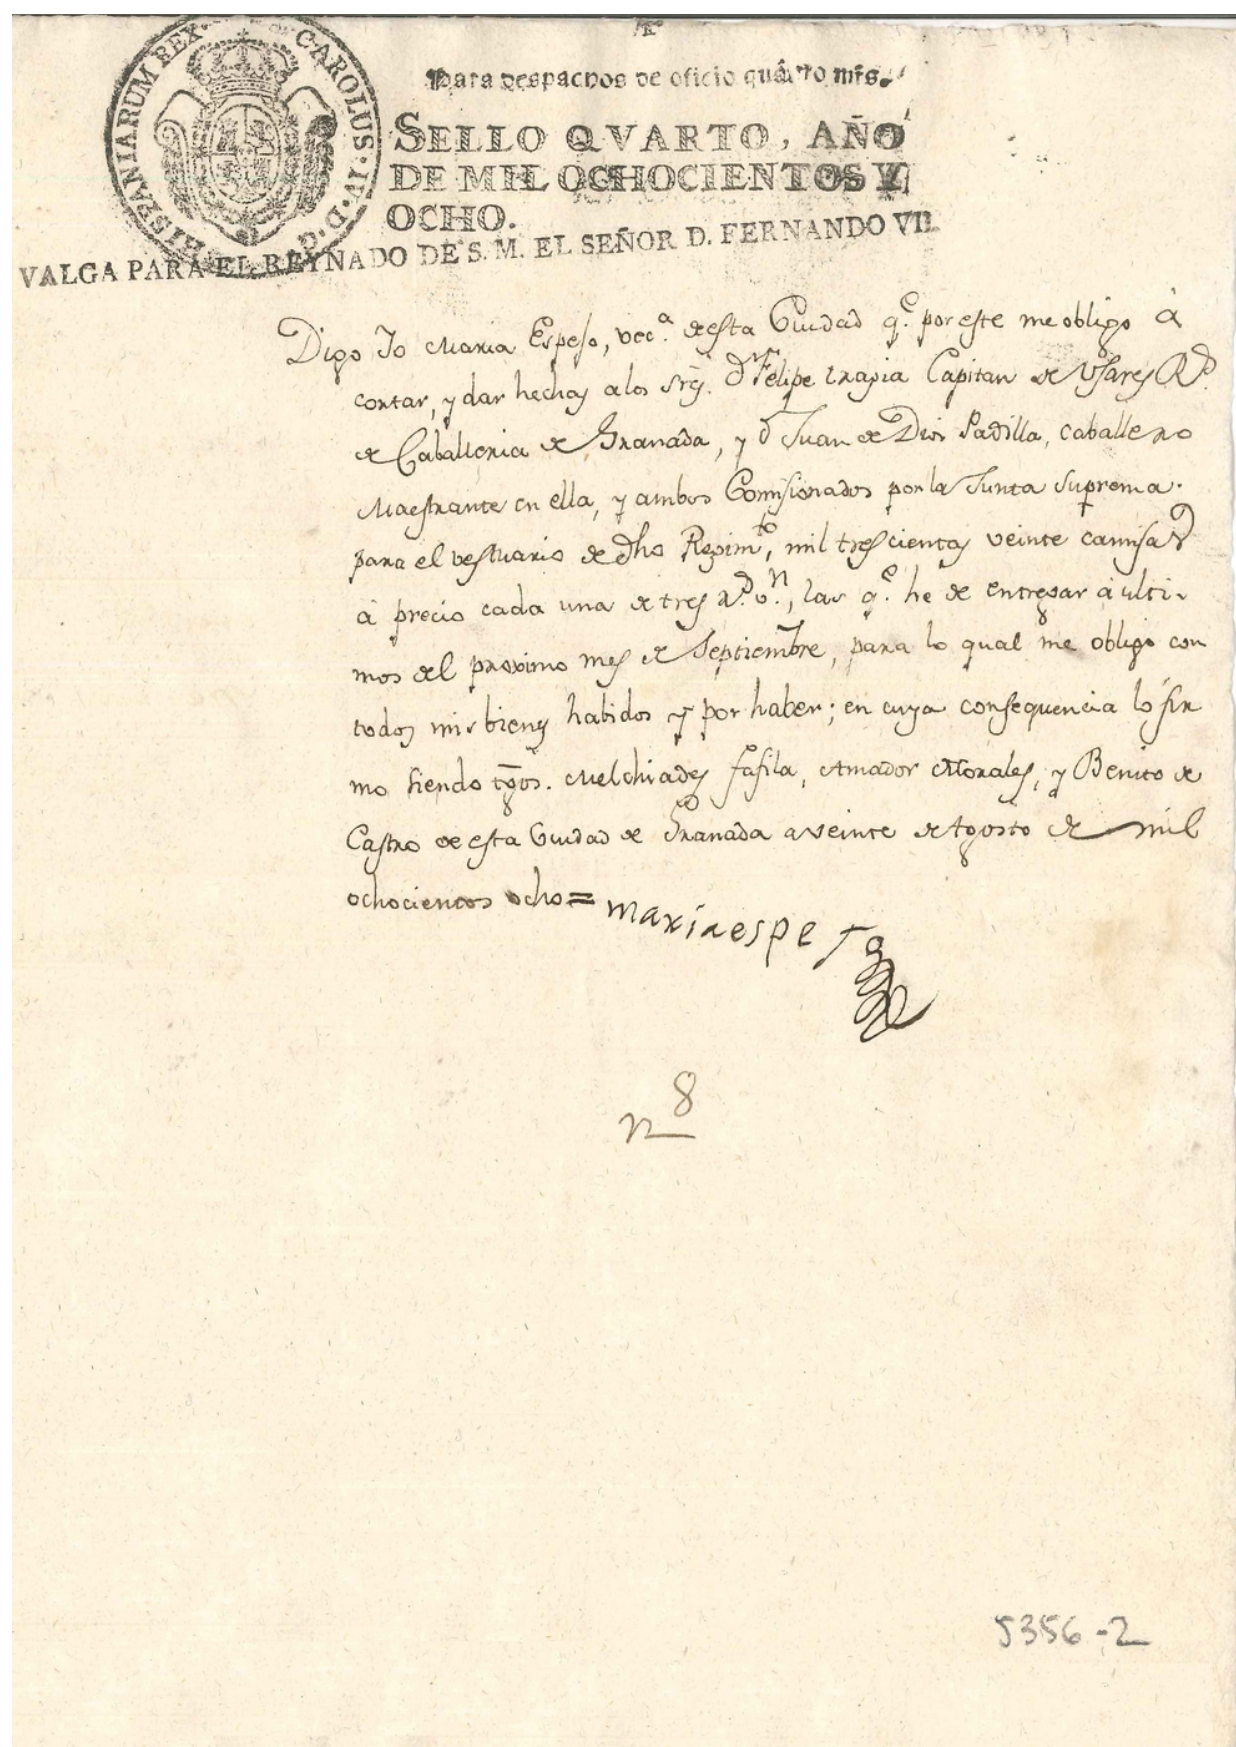 CAROLUS · IV · D · G · HISPANIARUM REX ·
Para despachos de oficio quátro mrs.
SELLO QVARTO, AÑO
DE MIL OCHOCIENTOS Y
OCHO.
VALGA PARA EL REYNADO DE S. M. EL SEÑOR D. FERNANDO VII.
Digo Yo Maria Espeso, vec.ª de esta Ciudad q.e por este me obligo à
cortar, y dar hechas a los sres. Dn Felipe Capitan de Usares Rs.
de Caballeria de Granada, y Dn Juan de Dios Padilla, caballero
Maestrante en ella, y ambos Comisionados por la Junta Suprema.
para el vestuario de dho Regim.to, mil trescientas veinte camisas
à precio cada una de tres rs. v.n, las q.e he de entregar à ulti-
mos del proximo mes de Septiembre, para lo qual me obligo con
todos mis bienes habidos y por haber; en cuya consequencia lo fir
mo siendo tgos. Melchiades Fafila, Amador Morales, y Benito de
Castro de esta Ciudad de Granada a veinte de Agosto de mil
ochocientos ocho = maria espeso
n 8
5356-2